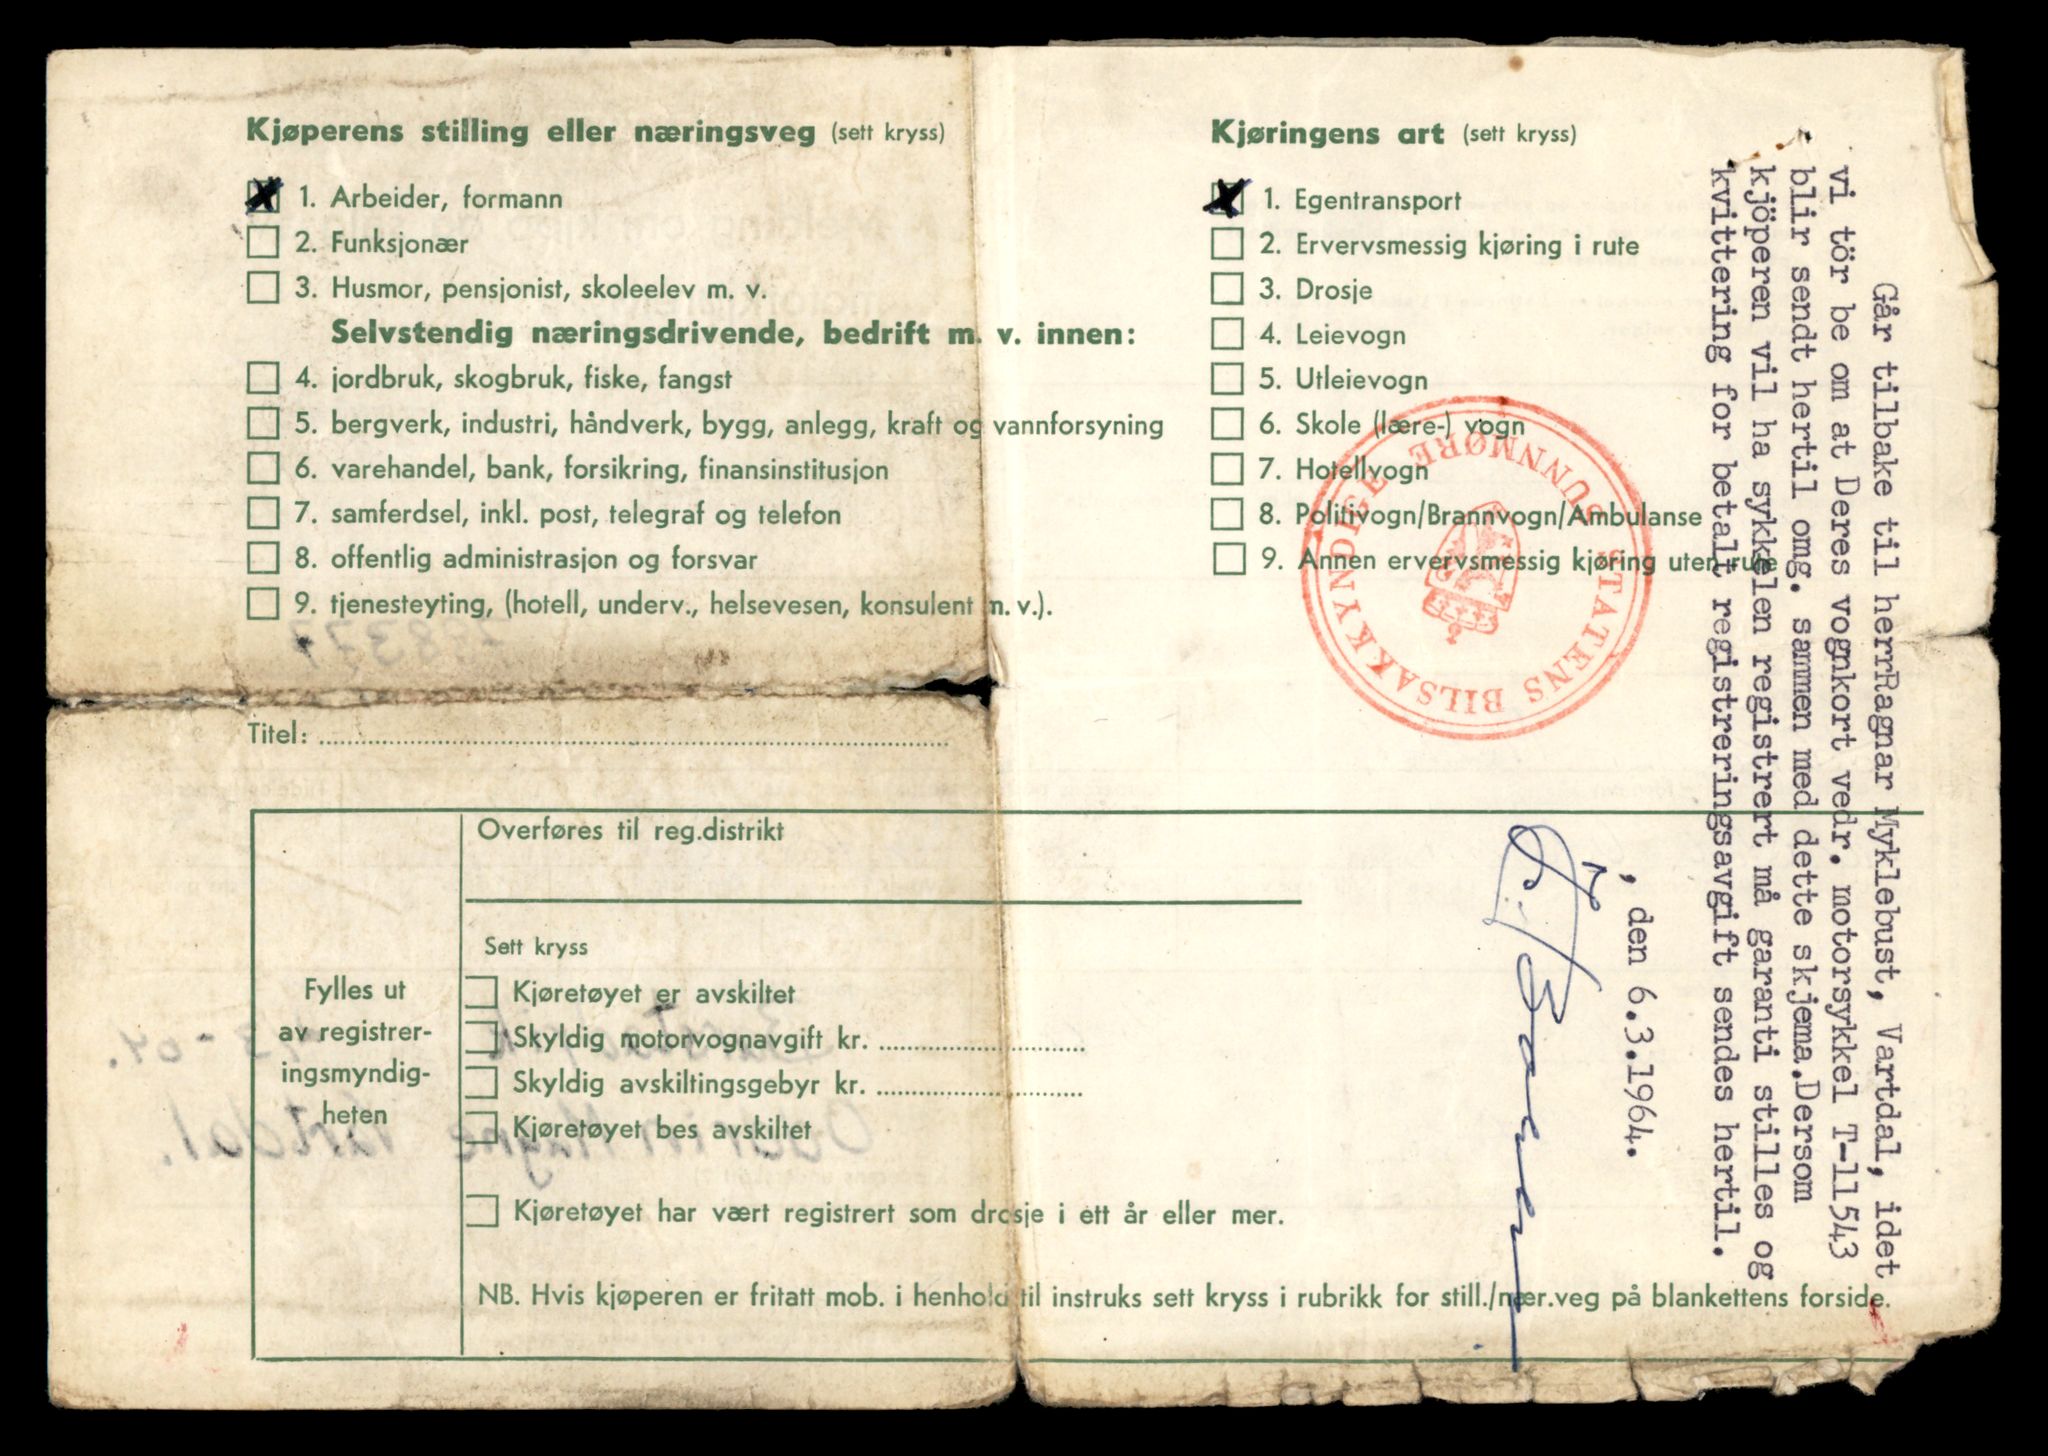 Kjøperens stilling eller næringsveg (sett kryss)
1. Arbeider, formann
2. Funksjonær
3. Husmor, pensjonist, skoleelev m. v.
Selvstendig næringsdrivende, bedrift m. v. innen:
4. jordbruk, skogbruk, fiske, fangst
5. bergverk, industri, håndverk, bygg, anlegg, kraft og vannforsyning
6. varehandel, bank, forsikring, finansinstitusjon
7. samferdsel, inkl. post, telegraf og telefon
8. offentlig administrasjon og forsvar
9. tjenesteyting, (hotell, underv., helsevesen, konsulent m. v.).
Titel:
Kjøringens art (sett kryss)
1. Egentransport
2. Ervervsmessig kjøring i rute
3. Drosje
4. Leievogn
5. Utleievogn
6. Skole (lære-) vogn
7. Hotellvogn
8. Politivogn/Brannvogn/Ambulanse
9. Annen ervervsmessig kjøring uten rute
STATENS BILSAKKYNDIGE
SUNNMØRE
Går tilbake til herrRagnar Myklebust, Vartdal, idet
vi tör be om at Deres vognkort vedr. motorsykkel T-11543
blir sendt hertil omg. sammen med dette skjema.Dersom
kjöperen vil ha sykkelen registrert må garanti stilles og
kvittering for betalt registreringsavgift sendes hertil.
, den 6.3.1964.
Fylles ut
av registrer-
ingsmyndig-
heten
Overføres til reg.distrikt
Sett kryss
Kjøretøyet er avskiltet
Skyldig motorvognavgift kr.
Skyldig avskiltingsgebyr kr.
Kjøretøyet bes avskiltet
Kjøretøyet har vært registrert som drosje i ett år eller mer.
NB. Hvis kjøperen er fritatt mob. i henhold til instruks sett kryss i rubrikk for still./nær.veg på blankettens forside.